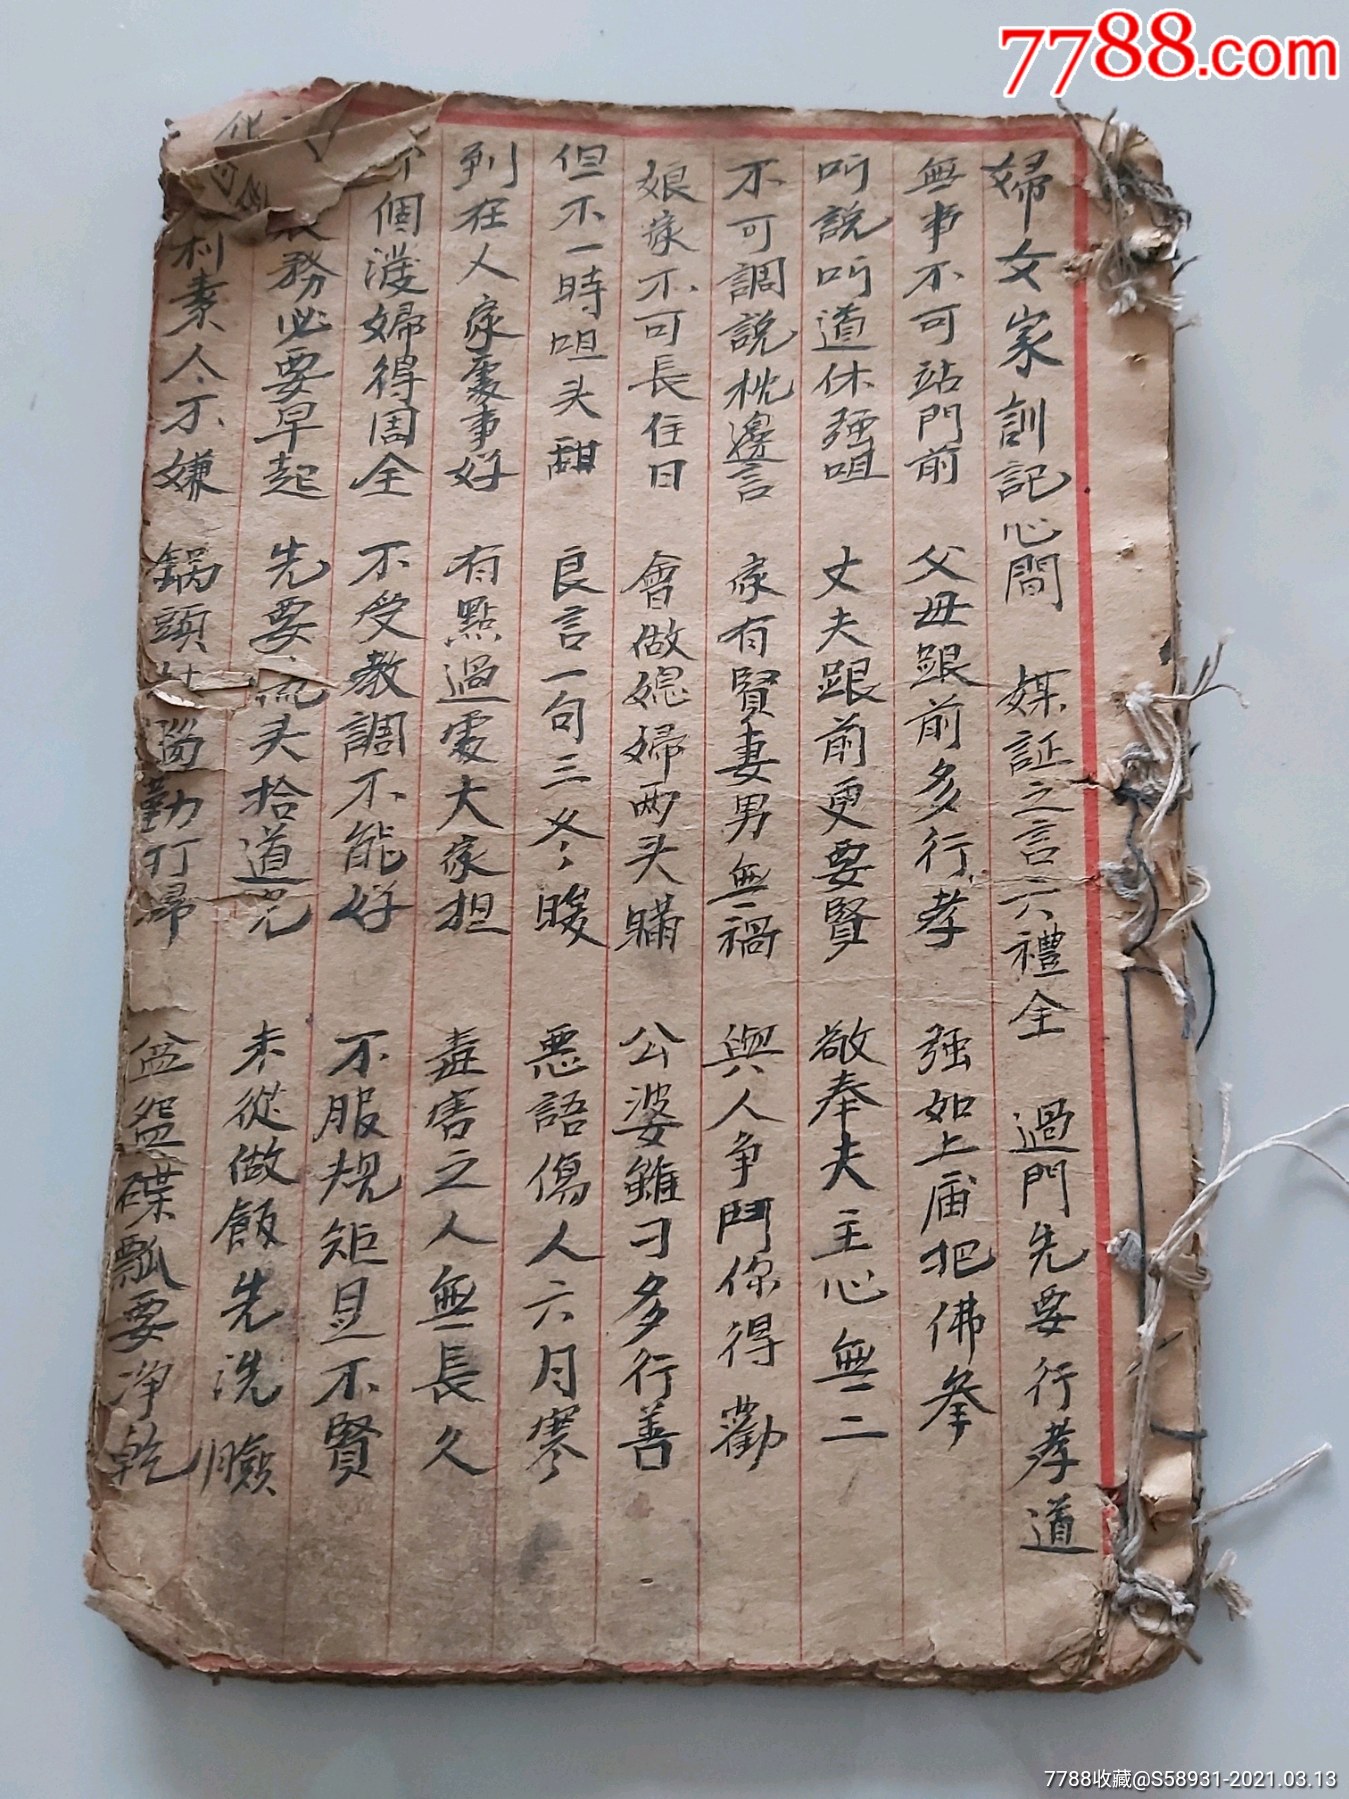 7788.com
婦女家訓記心間 媒証之言六禮全 過門先要行孝道
無事不可站門前 父母跟前多行孝 强如上庙把佛叅
听說听道休强咀 丈夫跟前更要賢 敬奉夫主心無二
不可調說枕邊言 家有賢妻男無禍 與人争鬥你得勸
娘家不可長住日 會做媳婦兩头瞞 公婆雖刁多行善
但不一時咀头甜 良言一句三冬暖 恶語傷人六月寒
到在人家處事好 有點過處大家担 毒害之人無長久
個潑婦得周全 不受教調不能好 不服規矩且不賢
務必要早起 先要 头拾道 未從做飯先洗臉
利素人人不嫌 鍋頭 勤打掃 盆盌碟瓢要净乾
7788收藏@S58931-2021.03.13